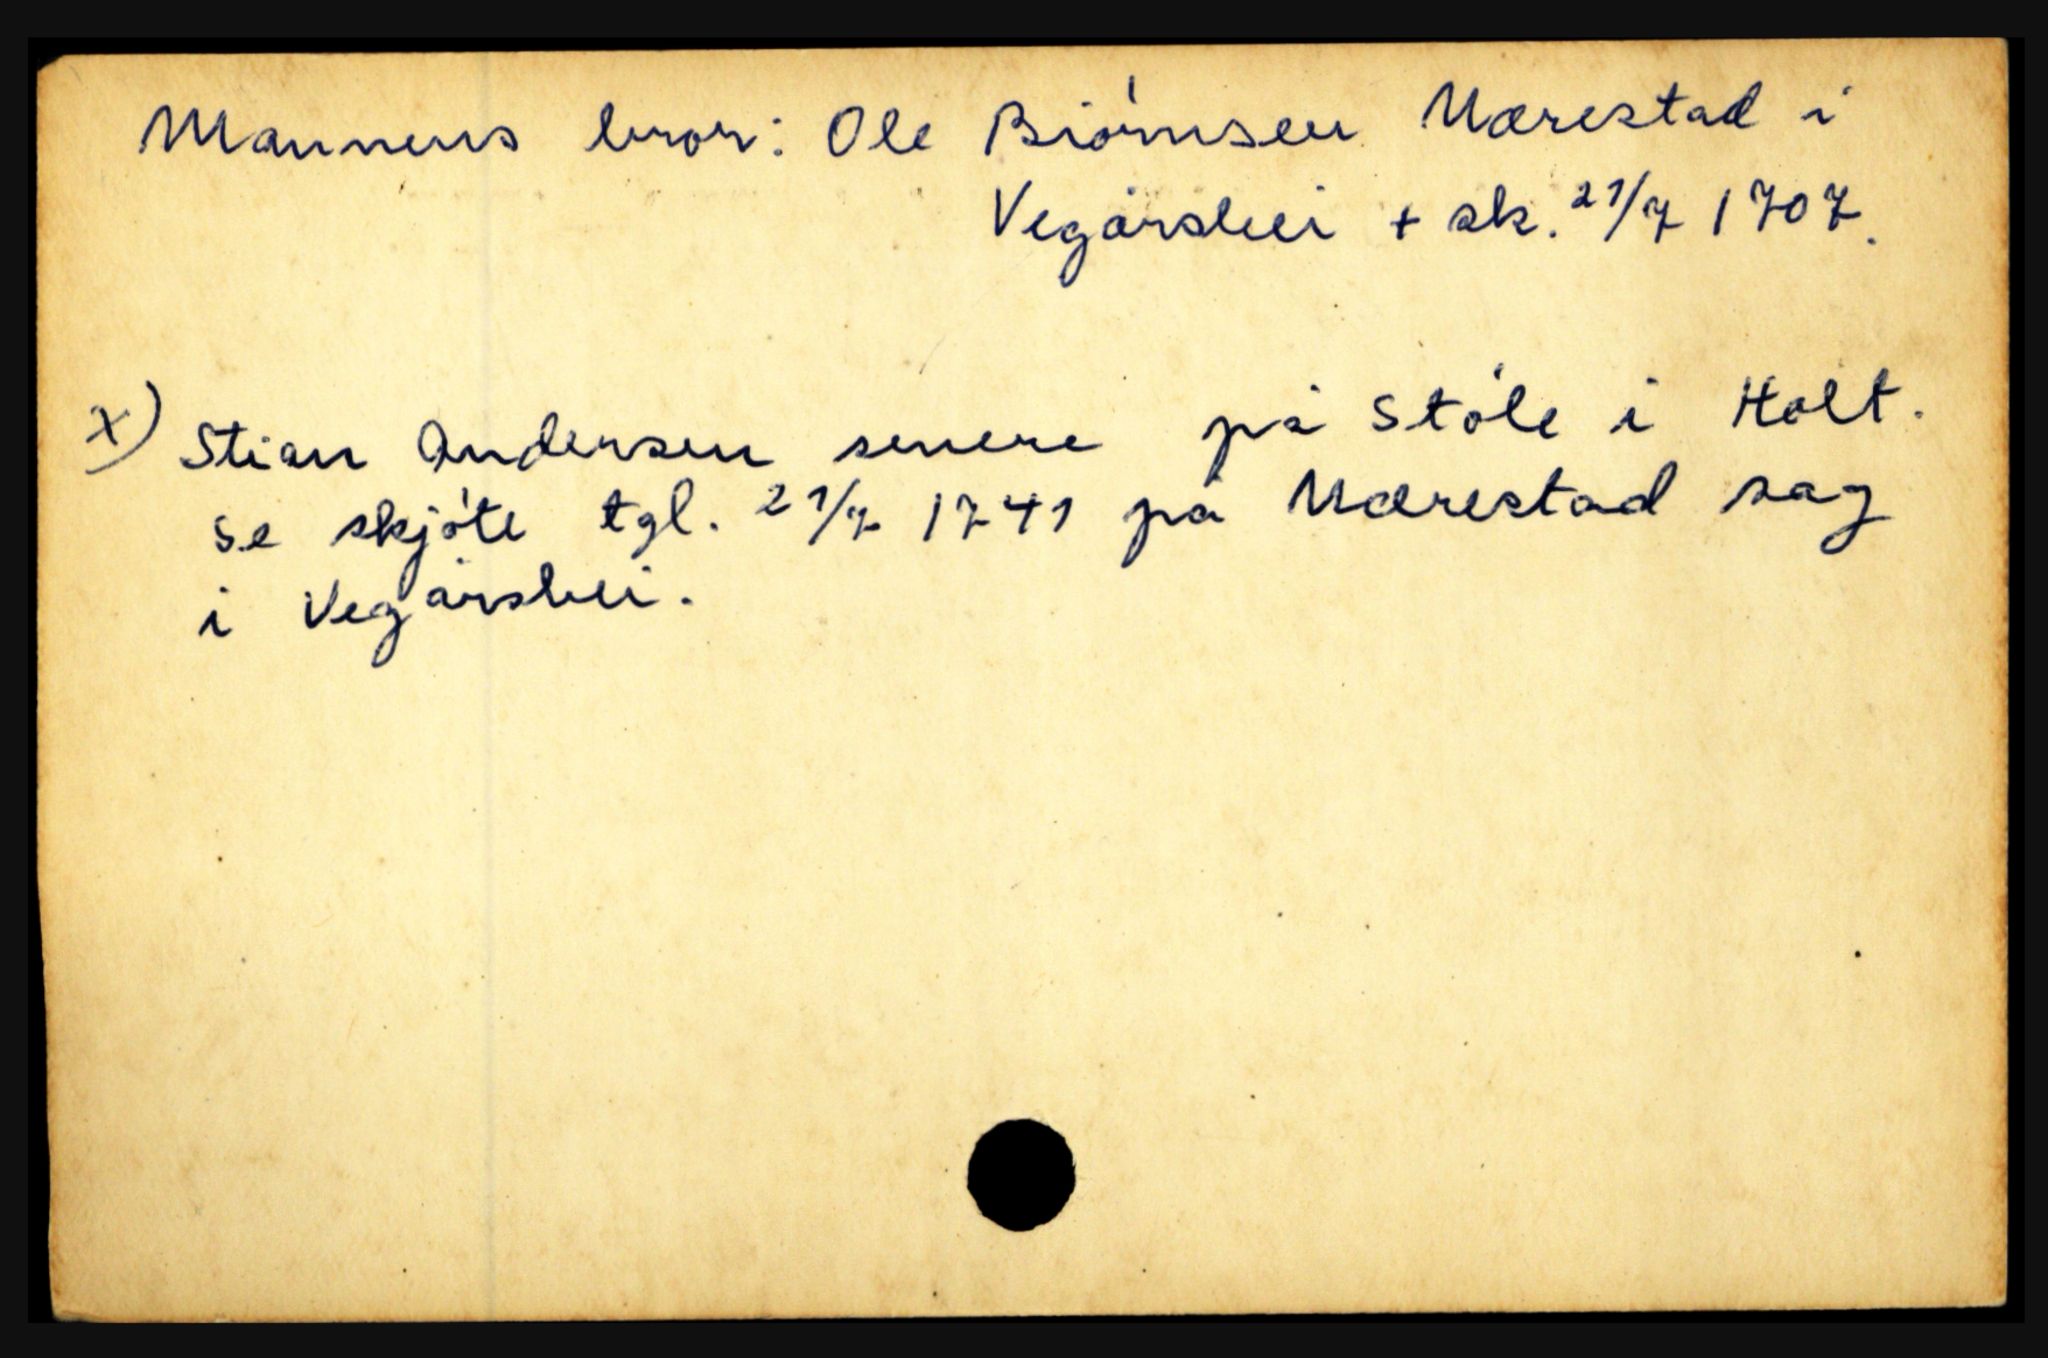 Mannens bror: Ole Biórnsen Nærestad i
Vegårshei + sk. 21/7 1707.
x) Stian Andersen senere på Stóle i Holt.
se skjóte tgl. 21/7 1741 på Nærestad sag
i Vegårshei.